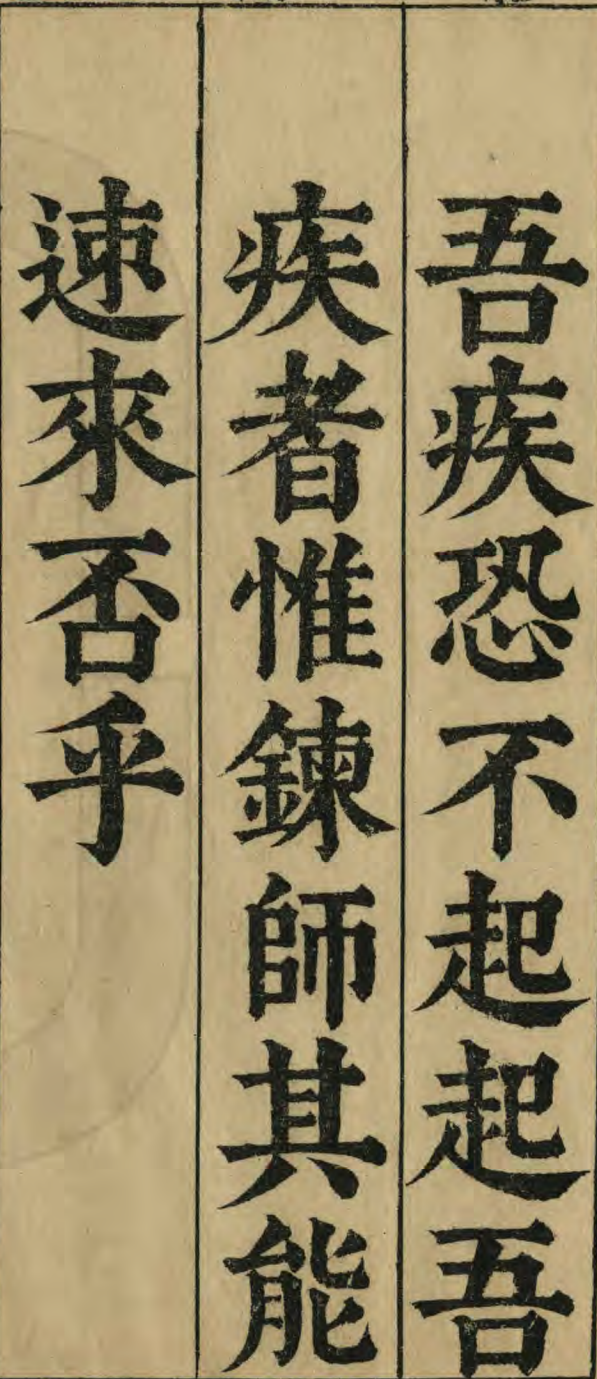 吾疾恐不起起吾
疾者惟鍊師其能
速來否乎